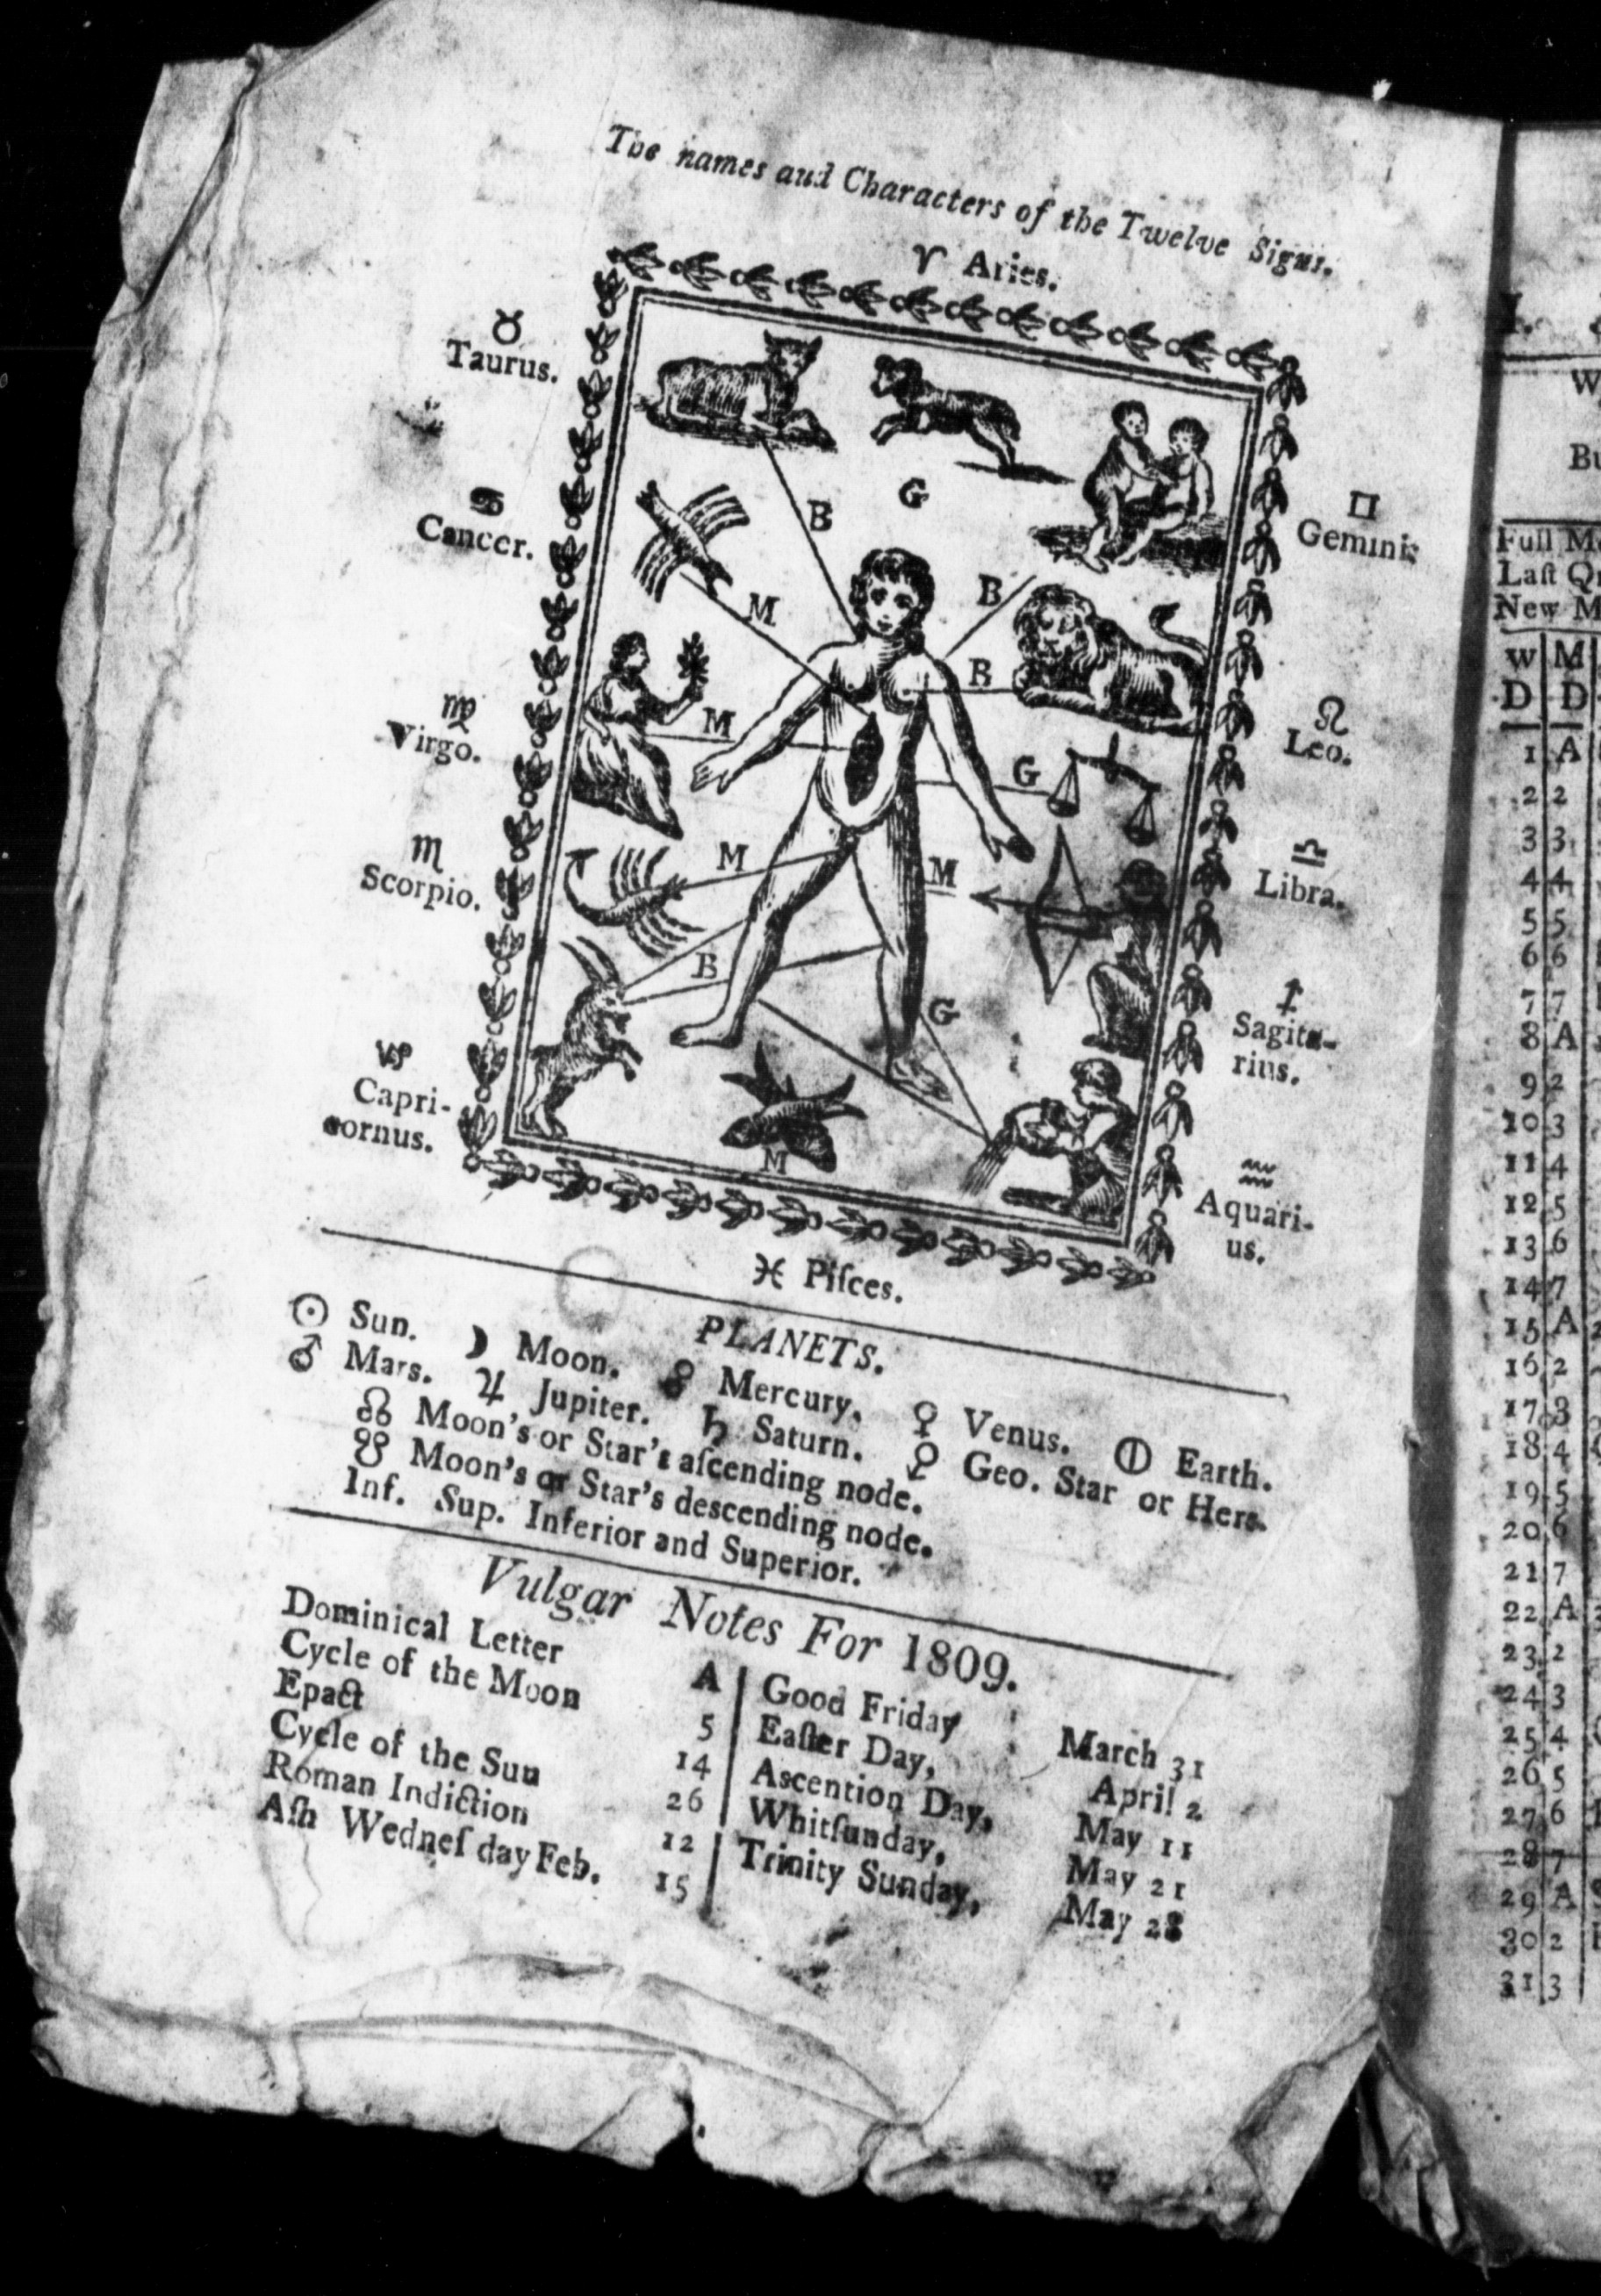 The names and Characters of the Twelve Signs.
♈ Aries.
♉
Taurus.
♋
Cancer.
♍
Virgo.
♏
Scorpio.
♑
Capri-
cornus.
♊
Gemini
♌
Leo.
♎
Libra.
♐
Sagita-
rius.
♒
Aquari-
us.
B
G
M
B
B
M
G
M
M
B
G
M
♓ Piſces.
PLANETS.
☉ Sun. ☽ Moon. ☿ Mercury. ♀ Venus. Earth.
♂ Mars. ♃ Jupiter. ♄ Saturn. Geo. Star or Hers.
☊ Moon's or Star's aſcending node.
☋ Moon's or Star's descending node.
Inf. Sup. Inferior and Superior.
Vulgar Notes For 1809.
Dominical Letter A
Cycle of the Moon 5
Epact 14
Cycle of the Sun 26
Roman Indiction 12
Aſh Wedneſday Feb. 15
Good Friday March 31
Eaſter Day, April 2
Ascention Day, May 11
Whitſunday, May 21
Trinity Sunday, May 28
Full
Laſt
New
W M
D D
1 A
2 2
3 3
4 4
5 5
6 6
7 7
8 A
9 2
10 3
11 4
12 5
13 6
14 7
15 A
16 2
17 3
18 4
19 5
20 6
21 7
22 A
23 2
24 3
25 4
26 5
27 6
28 7
29 A
30 2
31 3